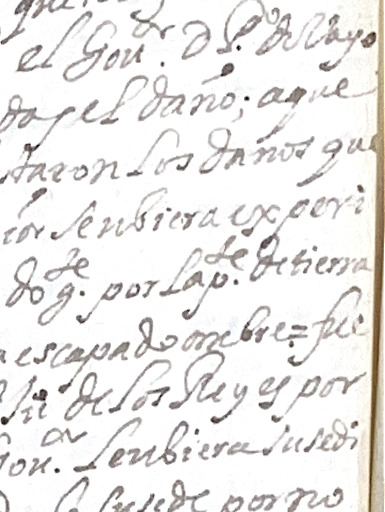 el Gou.or D P.o de Vayo
el daño; a que
taron los daños que
ior se ubiera experi
do g.te por la p.te de tierra
escapado onbre = fue
de los Reyes por
Gou.or se ubiera susedi
susede por no